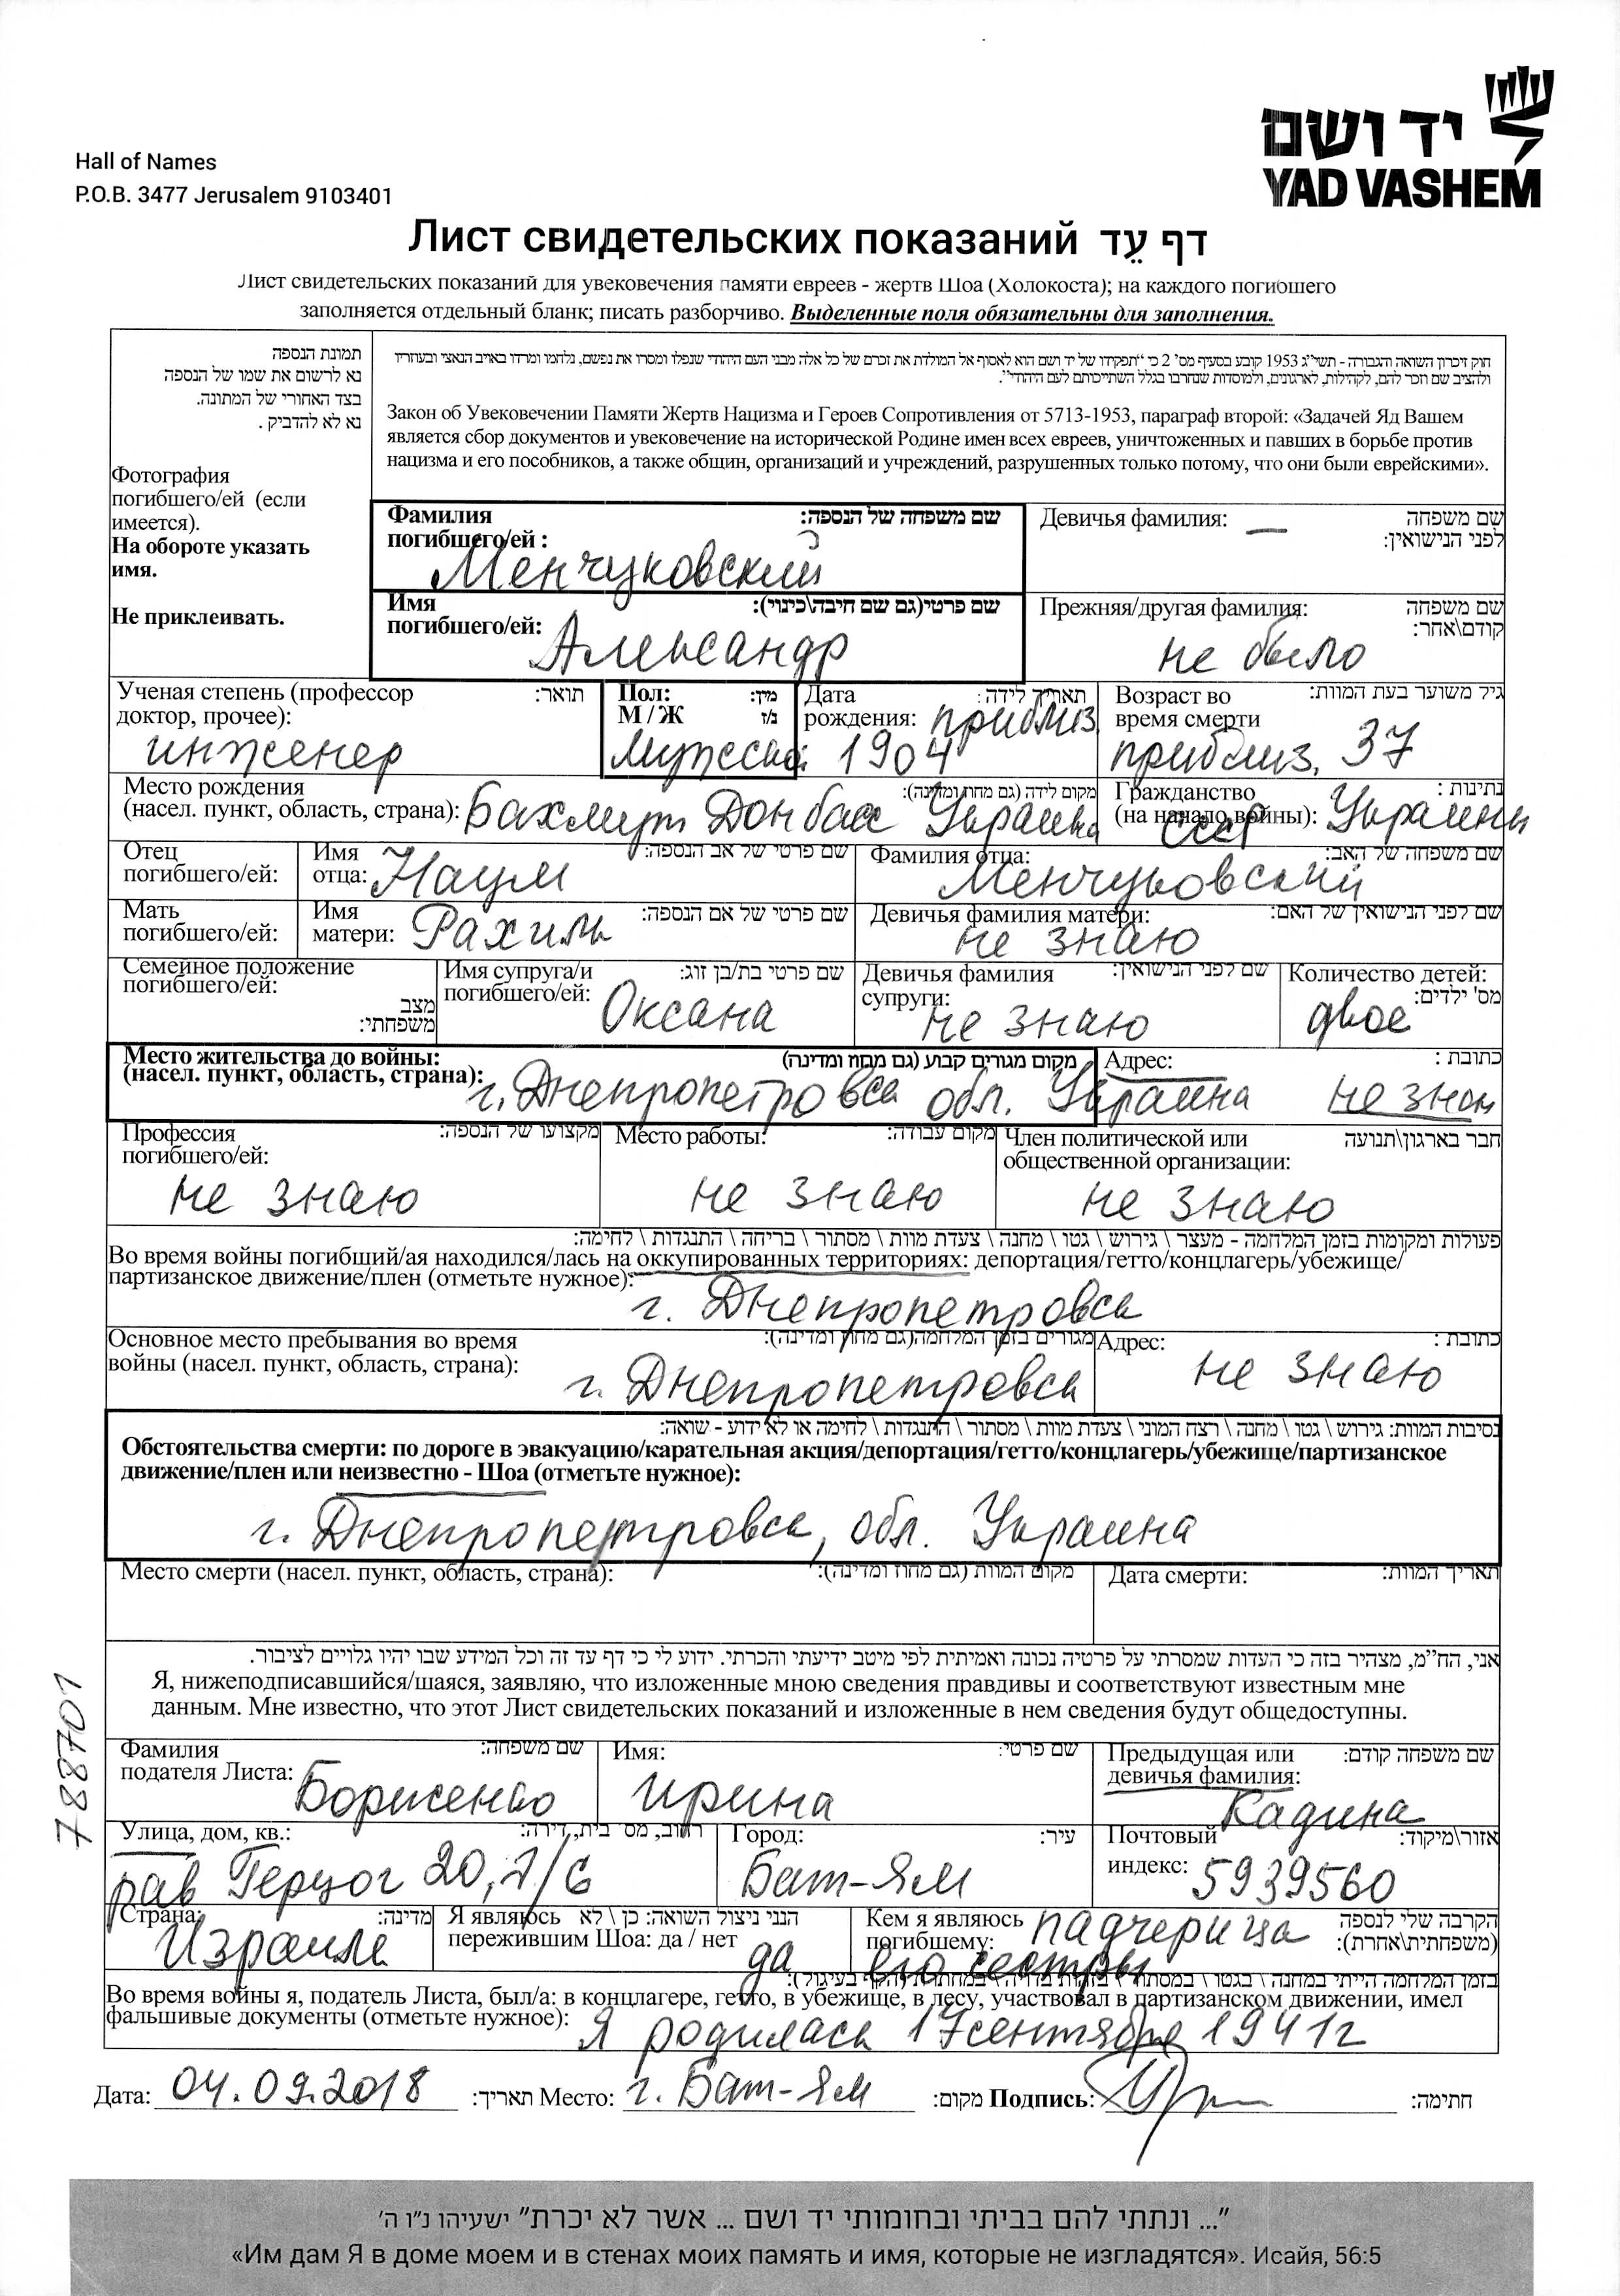 יד ושם
YAD VASHEM
Hall of Names
P.O.B. 3477 Jerusalem 9103401
Лист свидетельских показаний דף עֵד
Лист свидетельских показаний для увековечения памяти евреев - жертв Шоа (Холокоста); на каждого погибшего
заполняется отдельный бланк; писать разборчиво. Выделенные поля обязательны для заполнения.
תמונת הנספה
נא לרשום את שמו של הנספה
בצד האחורי של המתונה.
נא לא להדביק .
Фотография
погибшего/ей (если
имеется).
На обороте указать
имя.
Не приклеивать.
חוק זיכרון השואה והגבורה - תשי״ג 1953 קובע בסעיף מס׳ 2 כי ״תפקידו של יד ושם הוא לאסוף אל המולדת את זכרם של כל אלה מבני העם היהודי שנפלו ומסרו את נפשם, נלחמו ומרדו באויב הנאצי ובעוזריו
ולהציב שם וזכר להם, לקהילות, לארגונים, ולמוסדות שנחרבו בגלל השתייכותם לעם היהודי״.
Закон об Увековечении Памяти Жертв Нацизма и Героев Сопротивления от 5713-1953, параграф второй: «Задачей Яд Вашем
является сбор документов и увековечение на исторической Родине имен всех евреев, уничтоженных и павших в борьбе против
нацизма и его пособников, а также общин, организаций и учреждений, разрушенных только потому, что они были еврейскими».
Фамилия שם משפחה של הנספה:
погибшего/ей :
Менчуковский
Девичья фамилия: — שם משפחה
לפני הנישואין:
Имя שם פרטי(גם שם חיבה\כינוי):
погибшего/ей: Александр
Прежняя/другая фамилия: שם משפחה
קודם\אחר:
не было
Ученая степень (профессор תואר:
доктор, прочее):
инженер
Пол: מין:
М / Ж ז/נ
мужской
Дата תאריך לידה:
рождения: приблиз.
1904
Возраст во גיל משוער בעת המוות:
время смерти
приблиз. 37
Место рождения מקום לידה (גם מחוז ומדינה):
(насел. пункт, область, страна): Бахмут Донбасс Украина
Гражданство נתינות :
(на начало войны): Украины
СССР
Отец
погибшего/ей:
Имя שם פרטי של אב הנספה:
отца: Наум
Фамилия отца: שם משפחה של האב:
Менчуковский
Мать
погибшего/ей:
Имя שם פרטי של אם הנספה:
матери: Рахиль
Девичья фамилия матери: שם לפני הנישואין של האם:
не знаю
Семейное положение
погибшего/ей:
מצב
משפחתי:
Имя супруга/и שם פרטי בת/בן זוג:
погибшего/ей: Оксана
Девичья фамилия שם לפני הנישואין:
супруги:
не знаю
Количество детей:
מס' ילדים:
двое
Место жительства до войны: מקום מגורים קבוע (גם מחוז ומדינה)
(насел. пункт, область, страна): г. Днепропетровск обл. Украина
Адрес: כתובת :
не знаю
Профессия מקצועו של הנספה:
погибшего/ей:
не знаю
Место работы: מקום עבודה:
не знаю
Член политической или חבר בארגון\תנועה
общественной организации:
не знаю
פעולות ומקומות בזמן המלחמה - מעצר \ גירוש \ גטו \ מחנה \ צעדת מוות \ מסתור \ בריחה \ התנגדות \ לחימה:
Во время войны погибший/ая находился/лась на оккупированных территориях: депортация/гетто/концлагерь/убежище/
партизанское движение/плен (отметьте нужное):
г. Днепропетровск
Основное место пребывания во время מגורים בזמן המלחמה(גם מחוז ומדינה):
войны (насел. пункт, область, страна):
г. Днепропетровск
Адрес: כתובת :
не знаю
נסיבות המוות: גירוש \ גטו \ מחנה \ רצח המוני \ צעדת מוות \ מסתור \ התנגדות \ לחימה או לא ידוע - שואה:
Обстоятельства смерти: по дороге в эвакуацию/карательная акция/депортация/гетто/концлагерь/убежище/партизанское
движение/плен или неизвестно - Шоа (отметьте нужное):
г. Днепропетровск, обл. Украина
Место смерти (насел. пункт, область, страна): מקום המוות (גם מחוז ומדינה):
Дата смерти: תאריך המוות:
אני, הח״מ, מצהיר בזה כי העדות שמסרתי על פרטיה נכונה ואמיתית לפי מיטב ידיעתי והכרתי. ידוע לי כי דף עד זה וכל המידע שבו יהיו גלויים לציבור.
Я, нижеподписавшийся/шаяся, заявляю, что изложенные мною сведения правдивы и соответствуют известным мне
данным. Мне известно, что этот Лист свидетельских показаний и изложенные в нем сведения будут общедоступны.
788701
Фамилия שם משפחה:
подателя Листа: Борисенко
Имя: שם פרטי:
Ирина
Предыдущая или שם משפחה קודם:
девичья фамилия:
Кадина
Улица, дом, кв.: רחוב, מס' בית, דירה:
рав Герцог 20, 7/6
Город: עיר:
Бат-Ям
Почтовый אזור\מיקוד:
индекс: 5939560
Страна: מדינה:
Израиль
Я являюсь הנני ניצול השואה: כן \ לא
пережившим Шоа: да / нет да
Кем я являюсь הקרבה שלי לנספה
погибшему: (משפחתית\אחרת):
падчерица
его сестры
Во время войны я, податель Листа, был/а: в концлагере, гетто, в убежище, в лесу, участвовал в партизанском движении, имел
фальшивые документы (отметьте нужное): Я родилась 17 сентября 1941г
Дата: 04.09.2018 תאריך: Место: г. Бат-Ям מקום: Подпись: חתימה:
״... ונתתי להם בביתי ובחומותי יד ושם ... אשר לא יכרת״ ישעיהו נ״ו ה׳
«Им дам Я в доме моем и в стенах моих память и имя, которые не изгладятся». Исайя, 56:5